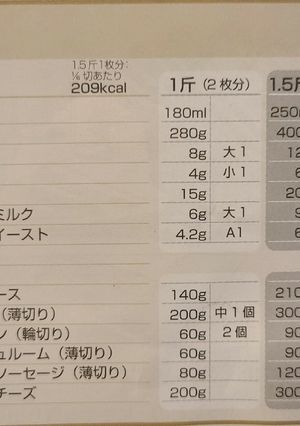 1.5斤1枚分:
⅙切あたり
209kcal
1斤 (2枚分) 1.5斤
180ml 250m
280g 400
8g 大1 12
4g 小1 6
15g 20
ミルク 6g 大1 9
イースト 4.2g A1 6
ース 140g 210
(薄切り) 200g 中1個 300
ン(輪切り) 60g 2個 90
ュルーム(薄切り) 60g 90
ソーセージ(薄切り) 80g 120
チーズ 200g 300